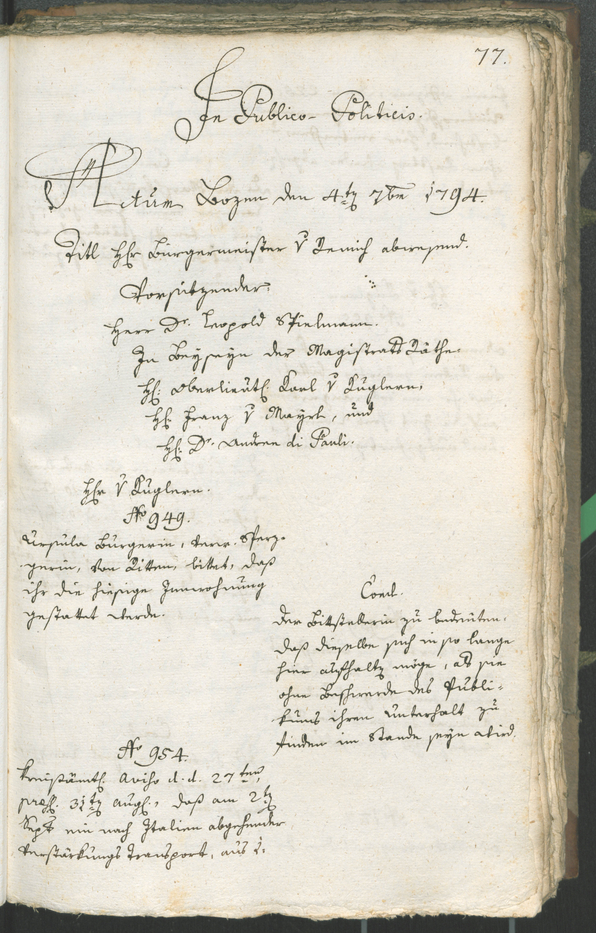 77.
In Publico-Politicis.
Actum Bozen den 4ten 7bre 1794.
Titl Herr Bürgermeister v Remich abwesend.
Vorsitzender
Herr Dr. Leopold Spielmann.
In Beyseyn der Magistrats Räthe
H: Oberlieut: Karl v Kuglern,
H: Franz v Mayrl, und
H: Dr. Andree di Pauli.
Herr v Kuglern.
No 949.
Ursula Bürgerin, verw: Sperz-
gerin, von Ritten, bittet, daß
ihr die hiesige Innwohnung
gestattet werde.
Concl.
Der Bittstellerin zu bedeuten,
daß dieselbe sich in so lange
hier aufhalten möge, als sie
ohne Beschwerde des Publi-
kums ihren Unterhalt zu
finden im Stande seyn wird.
No 954.
Kreisämtl. Aviso d. d. 27ten,
præs: 31ten Aug:, daß am 2ten
Sept ein nach Italien abgehender
Verstärkungs Transport, aus 1: